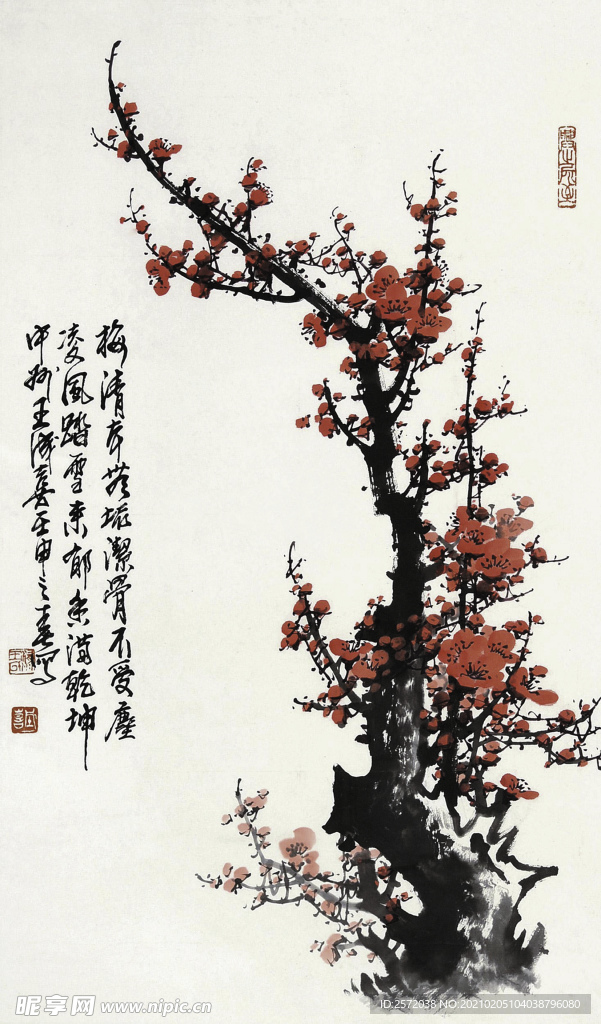 梅清本無垢潔骨不受塵
凌風踏雪来郁香滿乾坤
中州王成喜壬申之春写
昵享网 www.nipic.cn
ID:2572038 NO:20210205104038796080